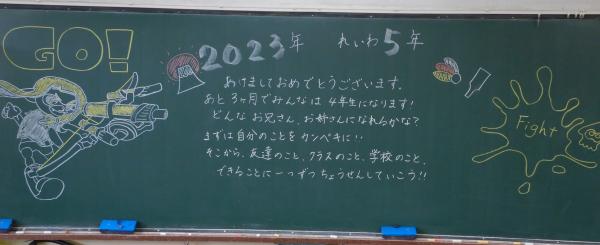 GO!
2023年 れいわ5年
あけましておめでとうございます。
あと3ヶ月でみんなは4年生になります!
どんなお兄さん、お姉さんになれるかな?
まずは自分のことをカンペキに!!
そこから、友達のこと、クラスのこと、学校のこと、
できることに一つずつちょうせんしていこう!!
Fight